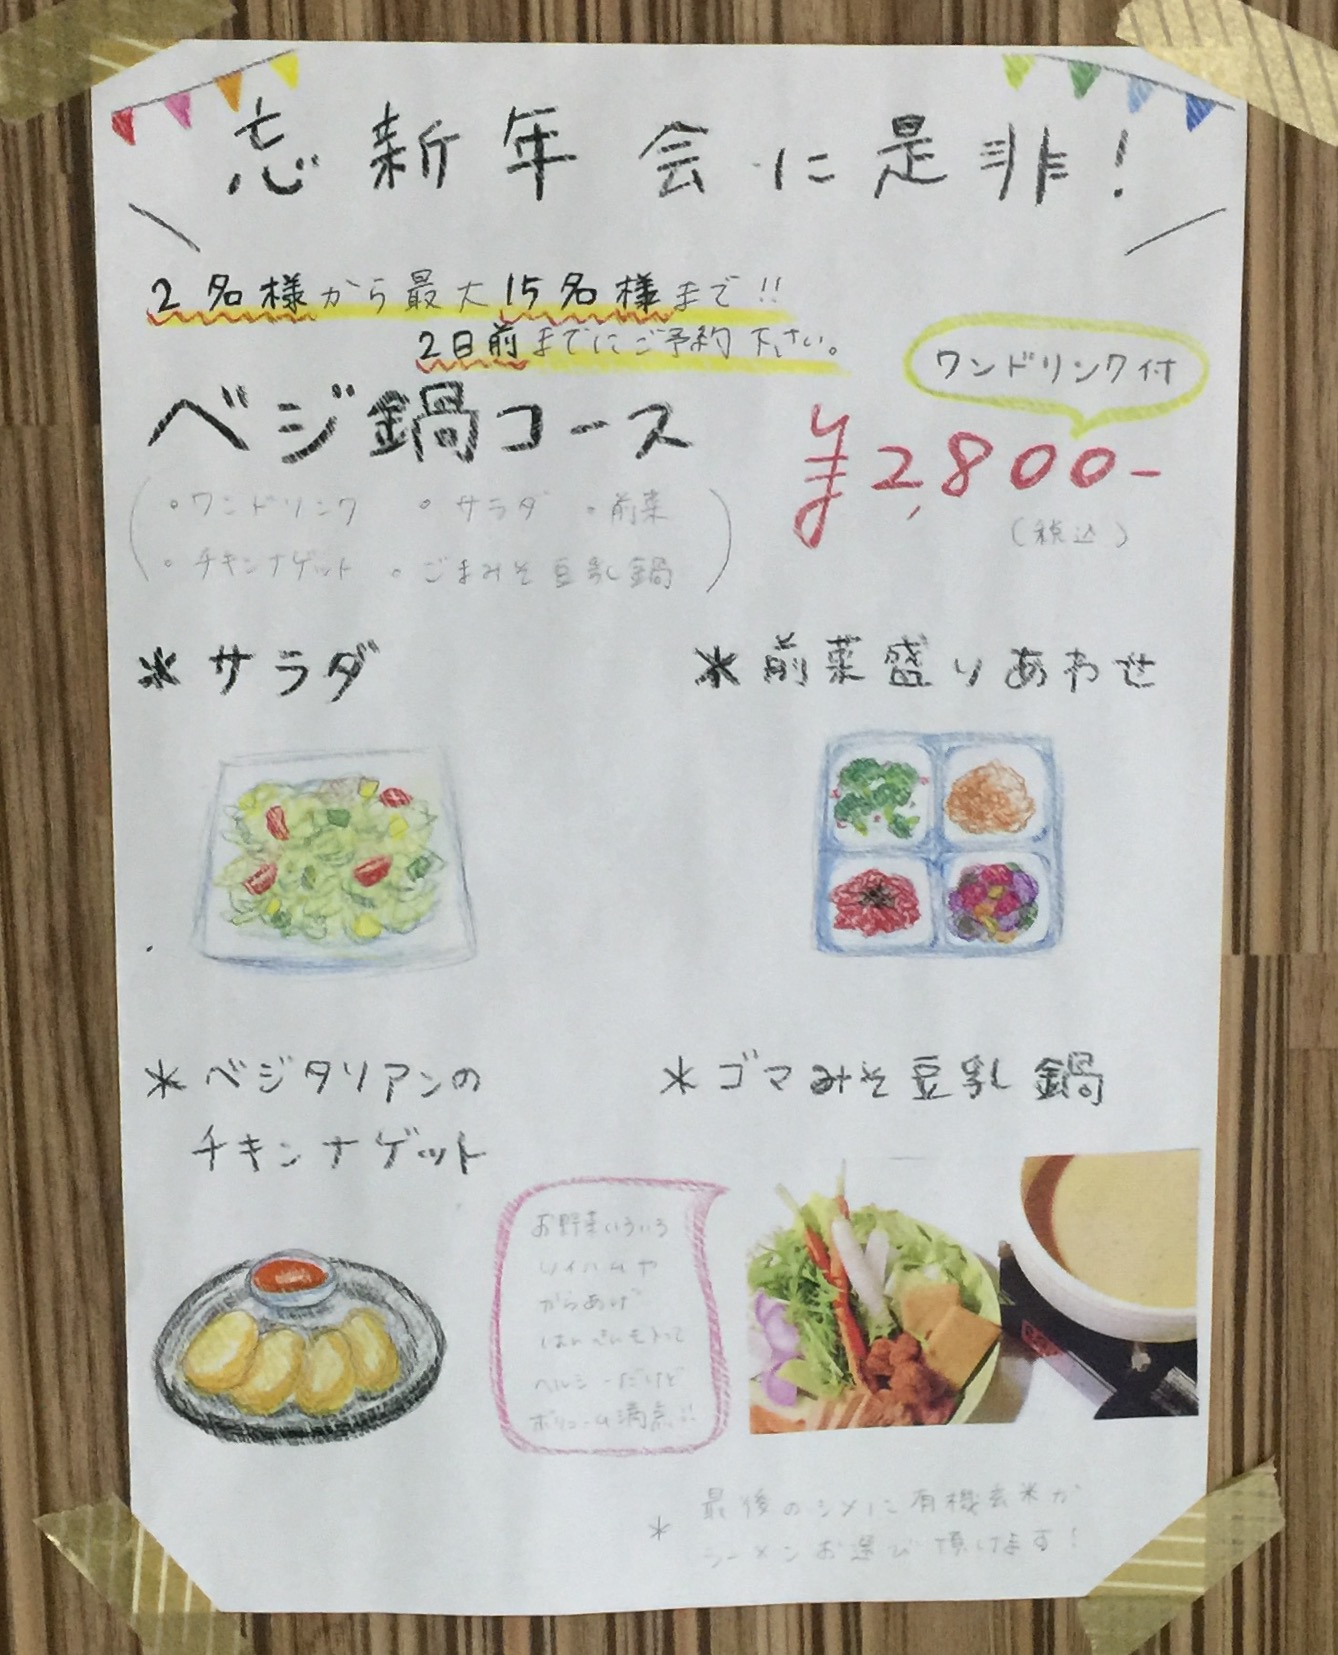 忘新年会に是非!
2名様から最大15名様まで!!
2日前までにご予約下さい。
ワンドリンク付
ベジ鍋コース
¥2,800-
(税込)
(・ワンドリンク ・サラダ ・前菜
・チキンナゲット ・ごまみそ豆乳鍋)
*サラダ
*前菜盛りあわせ
*ベジタリアンの
チキンナゲット
*ゴマみそ豆乳鍋
お野菜いろいろ
ソイハムや
からあげ
はんぺんも入って
ヘルシーだけど
ボリューム満点!!
* 最後のシメに有機玄米か
ラーメンお選び頂けます!